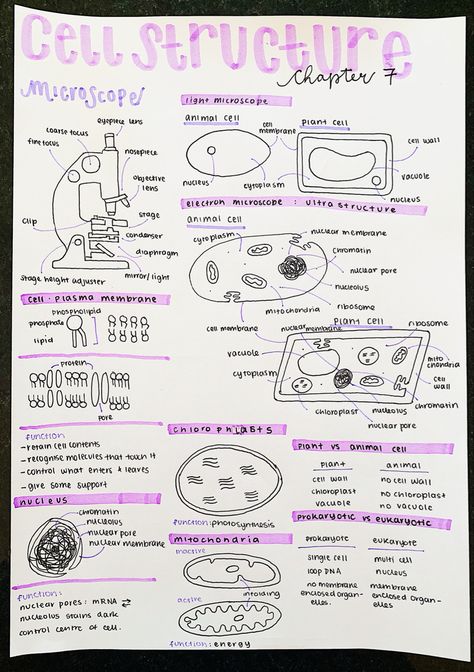 cell structure
chapter 7
microscope
eyepiece lens
coarse focus
fine focus
nosepiece
objective
lens
clip
stage
condenser
diaphragm
stage height adjuster
mirror/light
cell · plasma membrane
phospholipid
phosphate
lipid
protein
pore
function
- retain cell contents
- recognise molecules that touch it
- control what enters & leaves
- give some support
nucleus
chromatin
nucleolus
nuclear pore
nuclear membrane
function:
nuclear pores: mRNA ⇄
nucleolus stains dark
control centre of cell.
light microscope
animal cell
cell
membrane
plant cell
cell wall
vacuole
nucleus
cytoplasm
nucleus
electron microscope : ultrastructure
animal cell
cytoplasm
nuclear membrane
chromatin
nuclear pore
nucleolus
ribosome
mitochondria
cell membrane
nuclear membrane
plant cell
ribosome
vacuole
cytoplasm
mito
chondria
cell
wall
chromatin
chloroplast
nucleolus
nuclear
pore
chloroplasts
function: photosynthesis
mitochondria
inactive
infolding
active
function: energy
plant vs animal cell
plant animal
cell wall no cell wall
chloroplast no chloroplast
vacuole no vacuole
prokaryotic vs eukaryotic
prokaryote eukaryote
single cell multi cell
loop DNA nucleus
no membrane membrane
enclosed organ- enclosed organ-
elles. elles